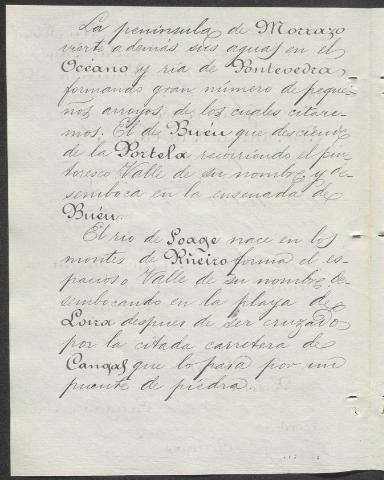 La península de Morrazo
vierte además sus aguas en el
Océano y ría de Pontevedra,
formando gran número de peque-
ños arroyos, de los cuales citare-
mos. El de Buéu que desciende
de la Portela recorriendo el pin-
toresco Valle de su nombre, y de-
semboca en la ensenada de
Buéu.
El río de Loage nace en los
montes de Rñeiro forma el es-
pacioso Valle de su nombre, de-
sembocando en la playa de
Loira despues de ser cruzado
por la citada carretera de
Cangas que lo pasa por un
puente de piedra.